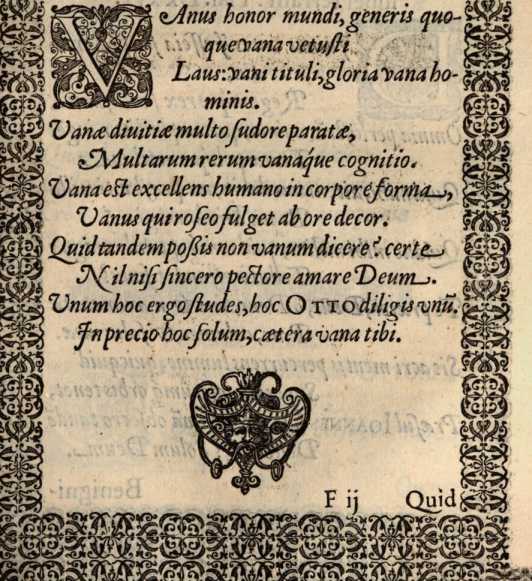 VAnus honor mundi, generis quo-
que vana vetusti
Laus: vani tituli, gloria vana ho-
minis.
Vanæ diuitiæ multo sudore paratæ,
Multarum rerum vanáque cognitio.
Vana est excellens humano in corpore forma,
Vanus qui roseo fulget ab ore decor.
Quid tandem poßis non vanum dicere? certe
Nil nisi sincero pectore amare Deum.
Vnum hoc ergo studes, hoc OTTO diligis vnū.
In precio hoc solum, cætera vana tibi.
F ij Quid